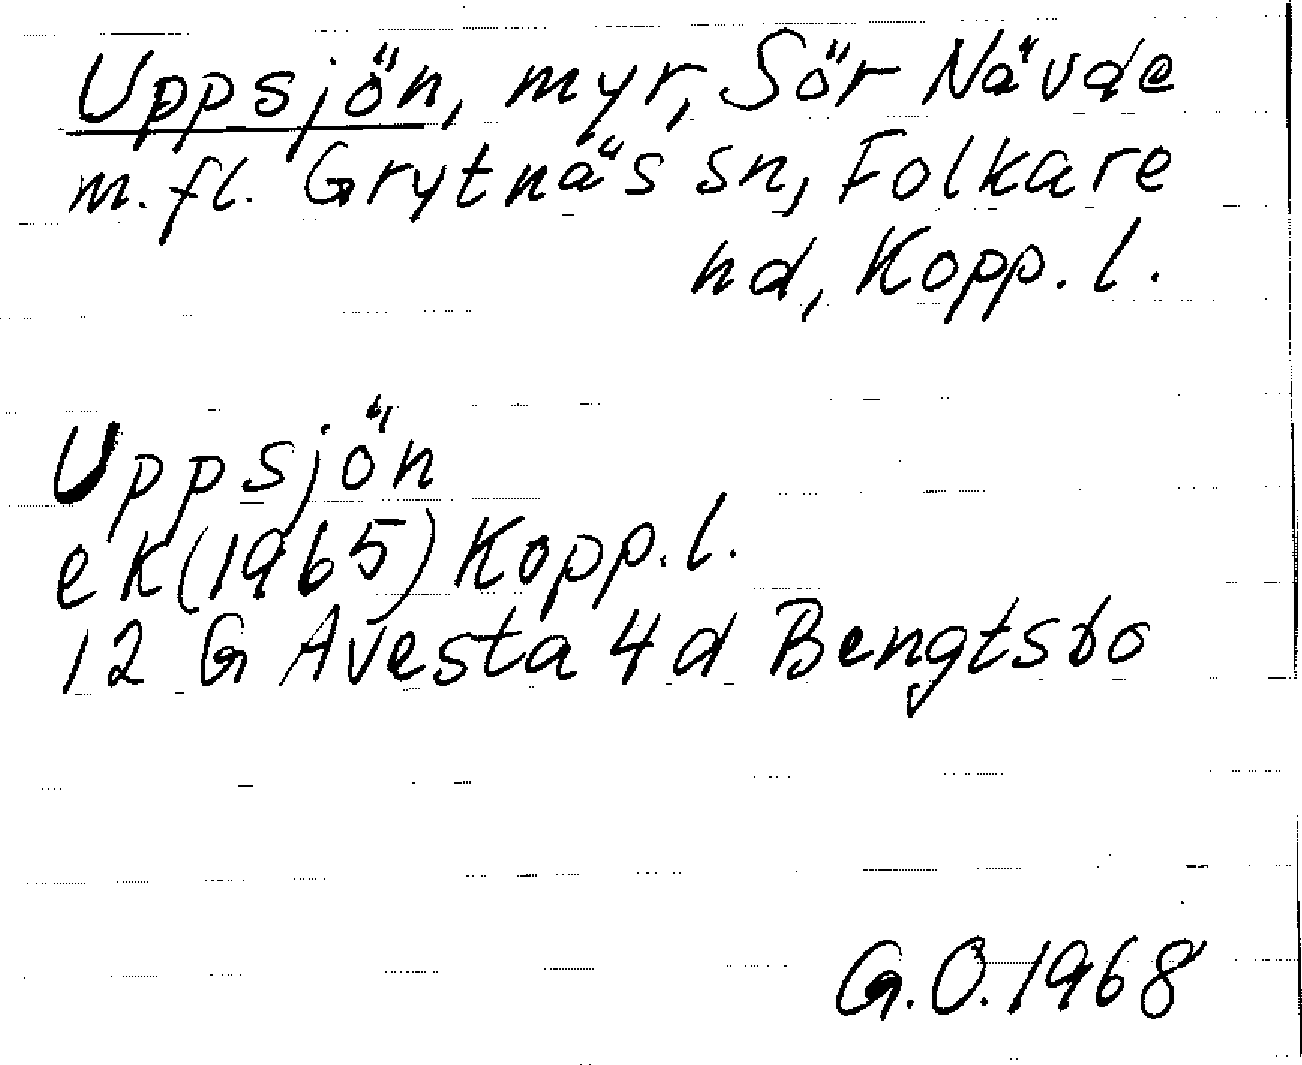 Uppsjön, myr, Sör Nävde
m.fl. Grytnäs sn, Folkare
hd, Kopp. l.
Uppsjön
ek (1965) Kopp. l.
12 G Avesta 4 d Bengtsbo
G.O. 1968